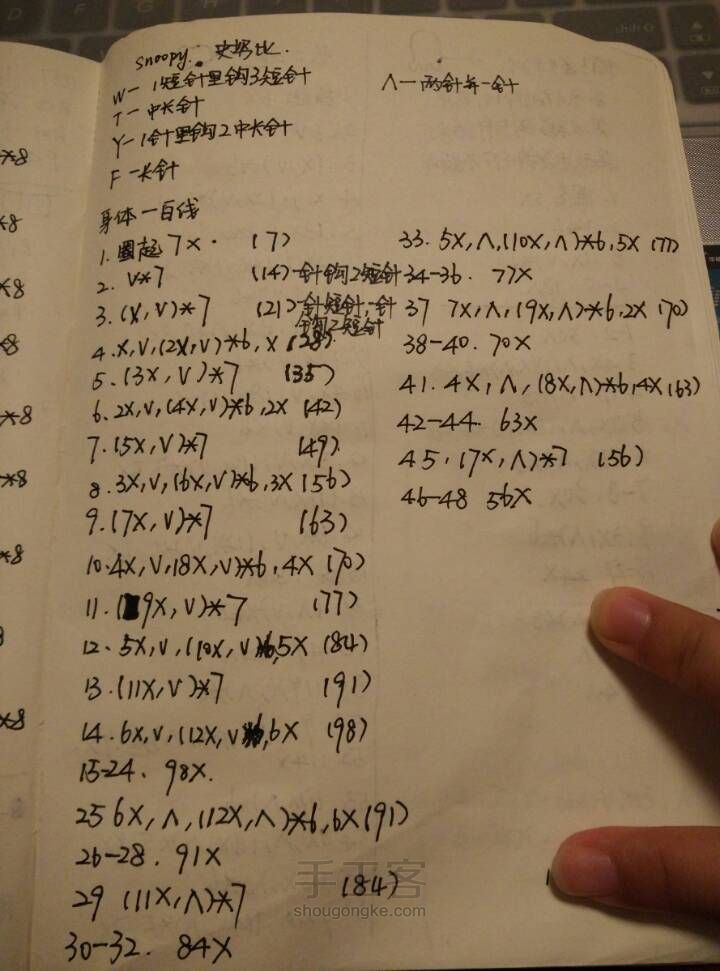 snoopy. 史努比.
W- 1短针里钩3短针
T-中长针
Y-1针里钩2中长针
F-长针
Λ-两针并一针
身体-白线
1. 圈起7X. (7)
2. V*7 (14)-针钩2短针
3. (X,V)*7 (21)-针短针,一针钩2短针
4.X,V,(2X,V)*6,X (28)
5.(3X,V)*7 (35)
6.2X,V,(4X,V)*6,2X (42)
7.(5X,V)*7 (49)
8.3X,V,(6X,V)*6,3X (56)
9.(7X,V)*7 (63)
10.4X,V,(8X,V)*6,4X (70)
11.(9X,V)*7 (77)
12.5X,V,(10X,V)*6,5X (84)
13.(11X,V)*7 (91)
14.6X,V,(12X,V)*6,6X (98)
15-24. 98X.
25 6X,Λ,(12X,Λ)*6,6X (91)
26-28. 91X
29 (11X,Λ)*7 (84)
30-32. 84X
33. 5X,Λ,(10X,Λ)*6,5X (77)
34-36. 77X
37 7X,Λ,(9X,Λ)*6,2X (70)
38-40. 70X
41. 4X,Λ,(8X,Λ)*6,4X (63)
42-44. 63X
45.(7X,Λ)*7 (56)
46-48 56X
*8
*8
*8
*8
*8
*8
*8
*8
手工客
shougongke.com